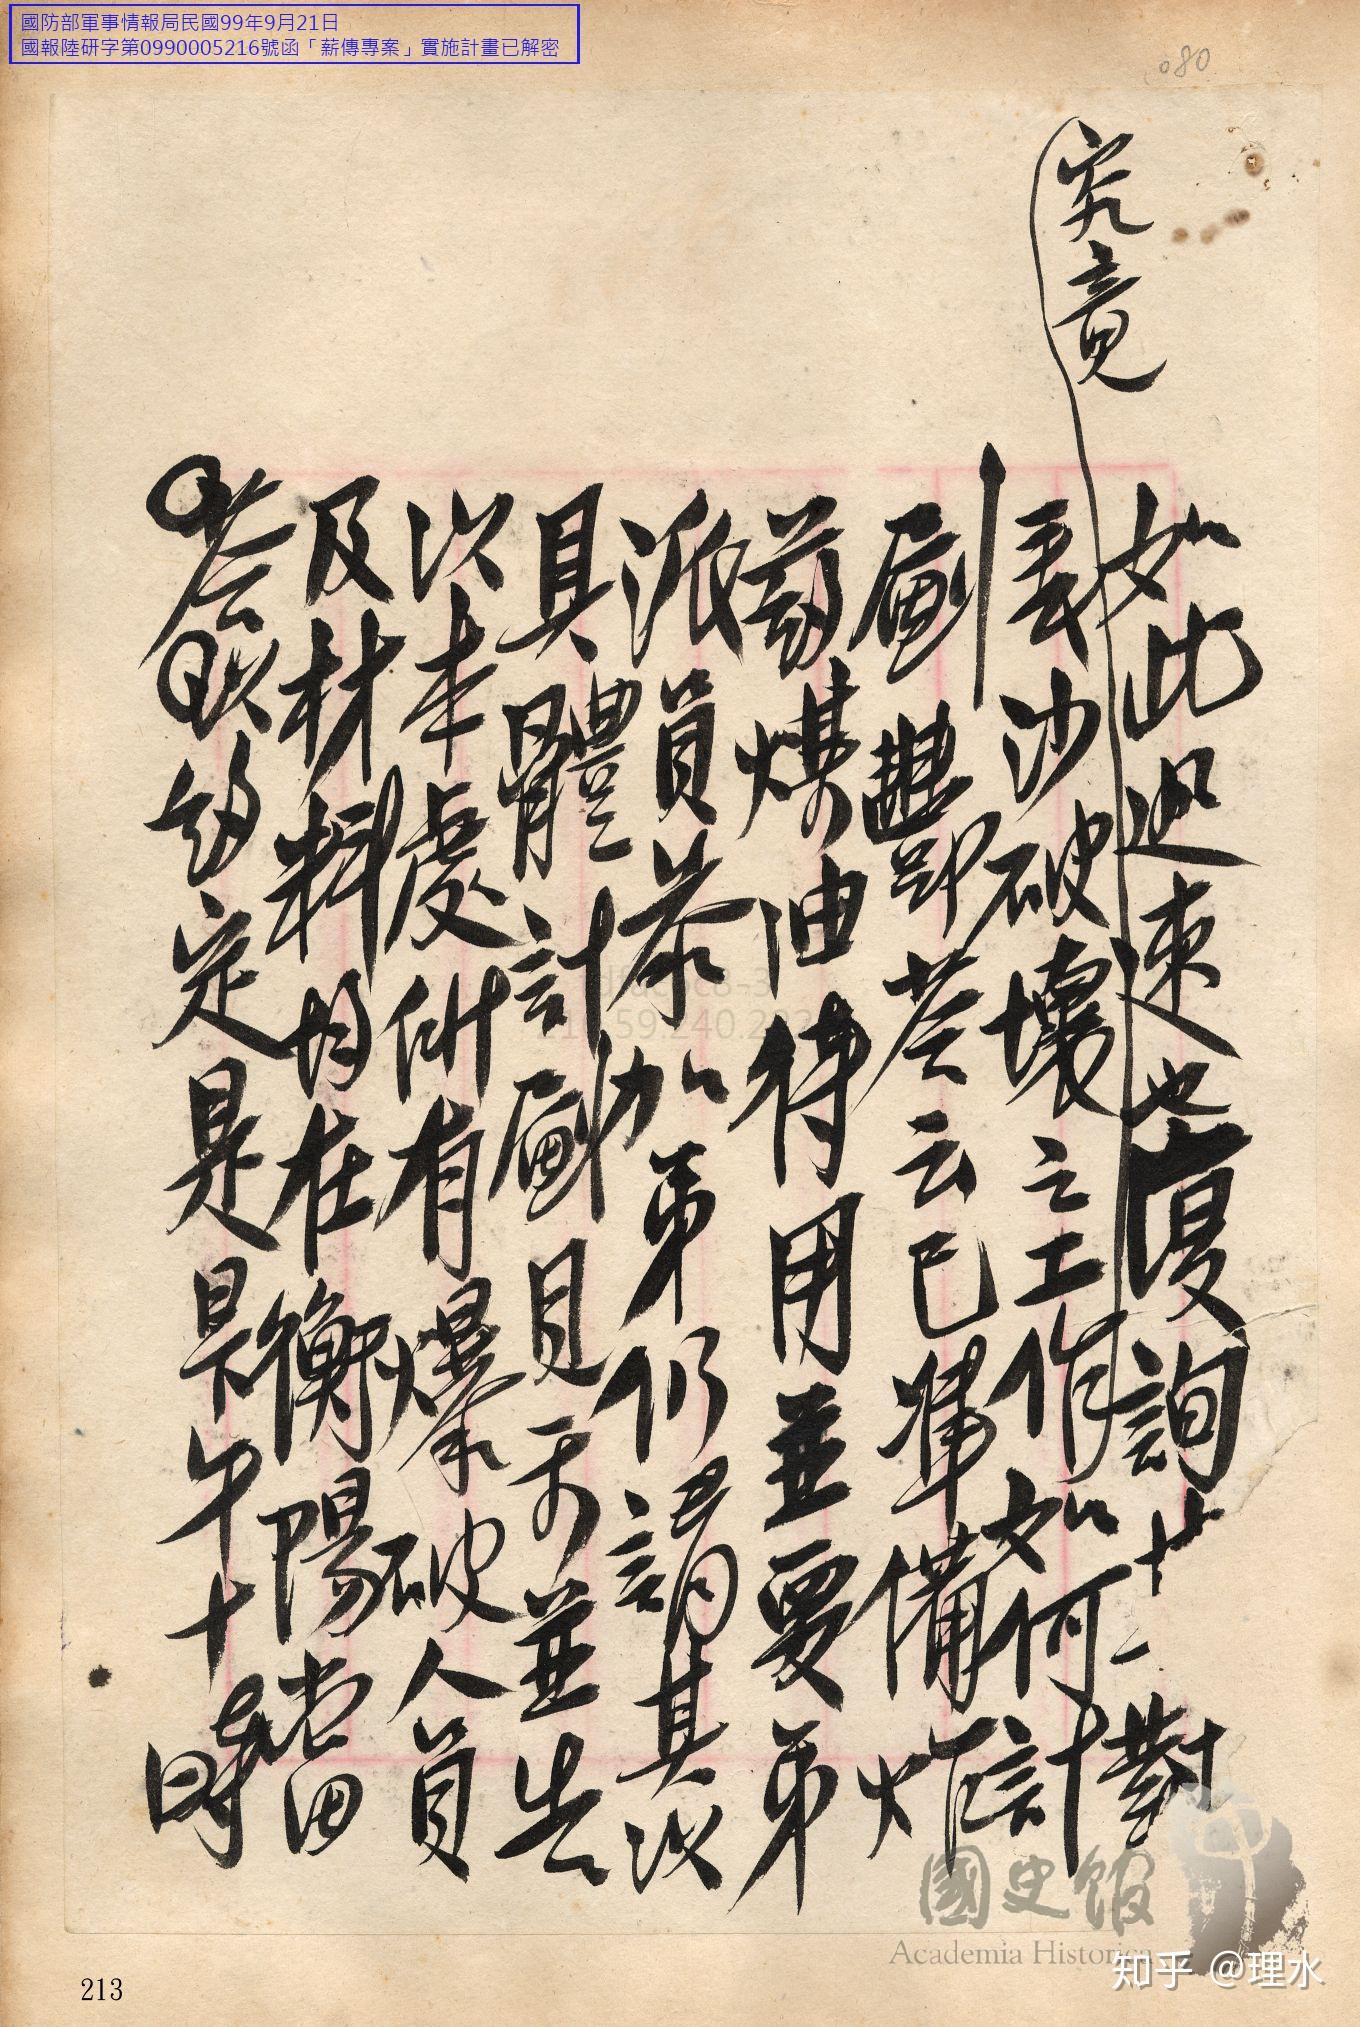 國防部軍事情報局民國99年9月21日
國報陸研字第0990005216號函「薪傳專案」實施計畫已解密
080
究竟
如此迅速也復詢其對
長沙破壞之工作如何計
劃酆即答云已準備炸
藥煤油待用並要弟
派員參加弟仍請其以
具體計劃見示並告
以本處所有爆破人員
及材料均在衡陽當由
答以約定是日下午十時
國史館
Academia Historica
知乎 @理水
213